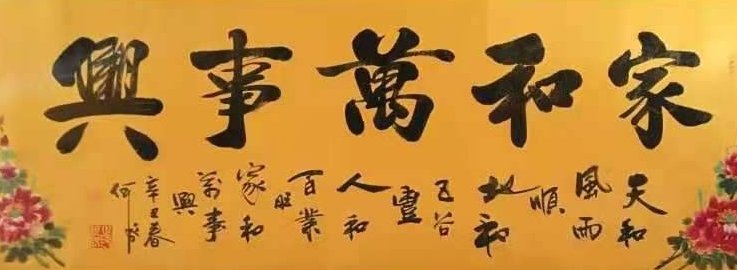 家和萬事興
天和
風雨
順
地和
五谷
豐
人和
百業
旺
家和
萬事
興
辛丑春
何